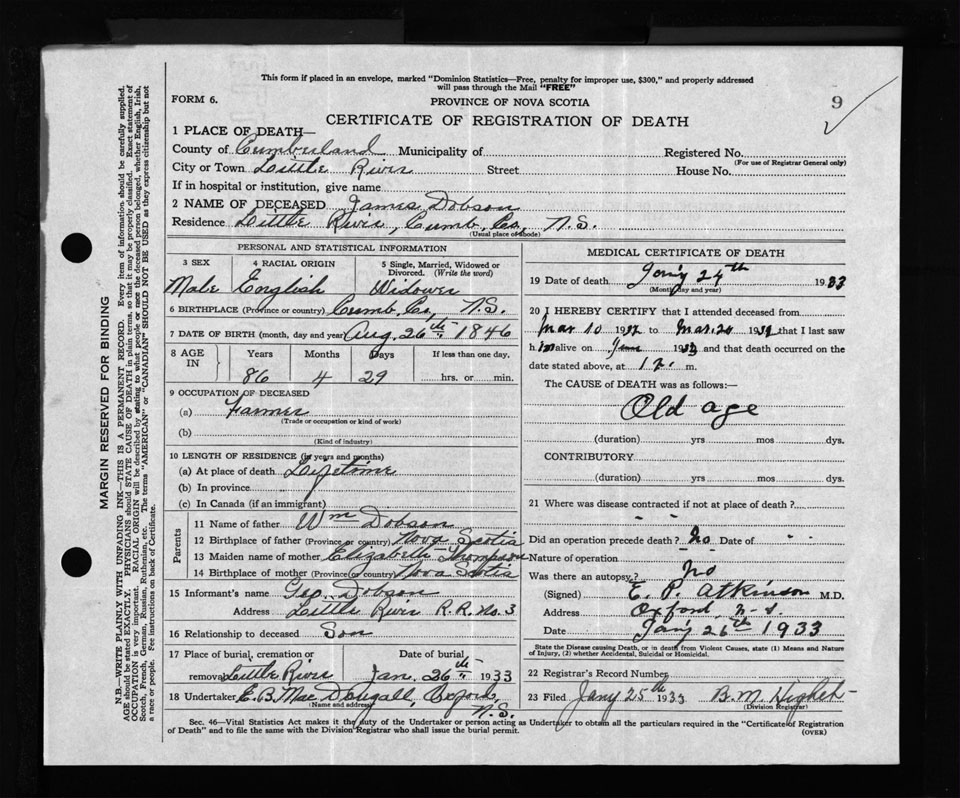 This form if placed in an envelope, marked "Dominion Statistics—Free, penalty for improper use, $300," and properly addressed
will pass through the Mail "FREE"
FORM 6.
PROVINCE OF NOVA SCOTIA
9
CERTIFICATE OF REGISTRATION OF DEATH
1 PLACE OF DEATH—
County of Cumberland Municipality of Registered No.
(For use of Registrar General only)
City or Town Little River Street House No.
If in hospital or institution, give name
2 NAME OF DECEASED James Dobson
Residence Little River, Cumb. Co., N.S.
(Usual place of abode)
PERSONAL AND STATISTICAL INFORMATION
3 SEX 4 RACIAL ORIGIN 5 Single, Married, Widowed or Divorced. (Write the word)
Male English Widower
6 BIRTHPLACE (Province or country) Cumb. Co., N.S.
7 DATE OF BIRTH (month, day and year) Aug. 26th 1846
8 AGE IN Years Months Days If less than one day.
86 4 29 hrs. or min.
9 OCCUPATION OF DECEASED
(a) Farmer
(Trade or occupation or kind of work)
(b)
(Kind of industry)
10 LENGTH OF RESIDENCE (in years and months)
(a) At place of death Lifetime
(b) In province
(c) In Canada (if an immigrant)
Parents
11 Name of father Wm Dobson
12 Birthplace of father (Province or country) Nova Scotia
13 Maiden name of mother Elizabeth Thompson
14 Birthplace of mother (Province or country) Nova Scotia
15 Informant's name Geo. Dobson
Address Little River R.R. No. 3
16 Relationship to deceased Son
17 Place of burial, cremation or removal Little River Date of burial Jan. 26th 1933
18 Undertaker E. B. MacDougall, Oxford, N.S.
(Name and address)
MEDICAL CERTIFICATE OF DEATH
19 Date of death Jan'y 24th 1933
(Month, day and year)
20 I HEREBY CERTIFY that I attended deceased from
Mar 10 1932 to Mar. 20 1932 that I last saw
h im alive on 1932 and that death occurred on the
date stated above, at 12. m.
The CAUSE of DEATH was as follows:—
Old age
(duration) yrs mos dys.
CONTRIBUTORY
(duration) yrs mos dys.
21 Where was disease contracted if not at place of death?
Did an operation precede death? No Date of
Nature of operation
Was there an autopsy? No
(Signed) E. P. Atkinson M.D.
Address Oxford, N.S.
Date Jan'y 26th 1933
State the Disease causing Death, or in death from Violent Causes, state (1) Means and Nature
of Injury, (2) whether Accidental, Suicidal or Homicidal.
22 Registrar's Record Number
23 Filed Jany 25th 1933 B.M.
(Division Registrar)
Sec. 46—Vital Statistics Act makes it the duty of the Undertaker or person acting as Undertaker to obtain all the particulars required in the "Certificate of Registration
of Death" and to file the same with the Division Registrar who shall issue the burial permit.
(OVER)
MARGIN RESERVED FOR BINDING
N.B.—WRITE PLAINLY WITH UNFADING INK—THIS IS A PERMANENT RECORD. Every item of information should be carefully supplied.
AGE should be stated EXACTLY. PHYSICIANS should STATE CAUSE OF DEATH in plain terms, so that it may be properly classified. Exact statement of
OCCUPATION is very important. RACIAL ORIGIN will be described by stating to what people or race the deceased person belonged, whether English, Irish,
Scotch, French, German, Russian, Ruthenian, etc. The terms "AMERICAN" or "CANADIAN" SHOULD NOT BE USED as they express citizenship but not
a race or people. See instructions on back of Certificate.